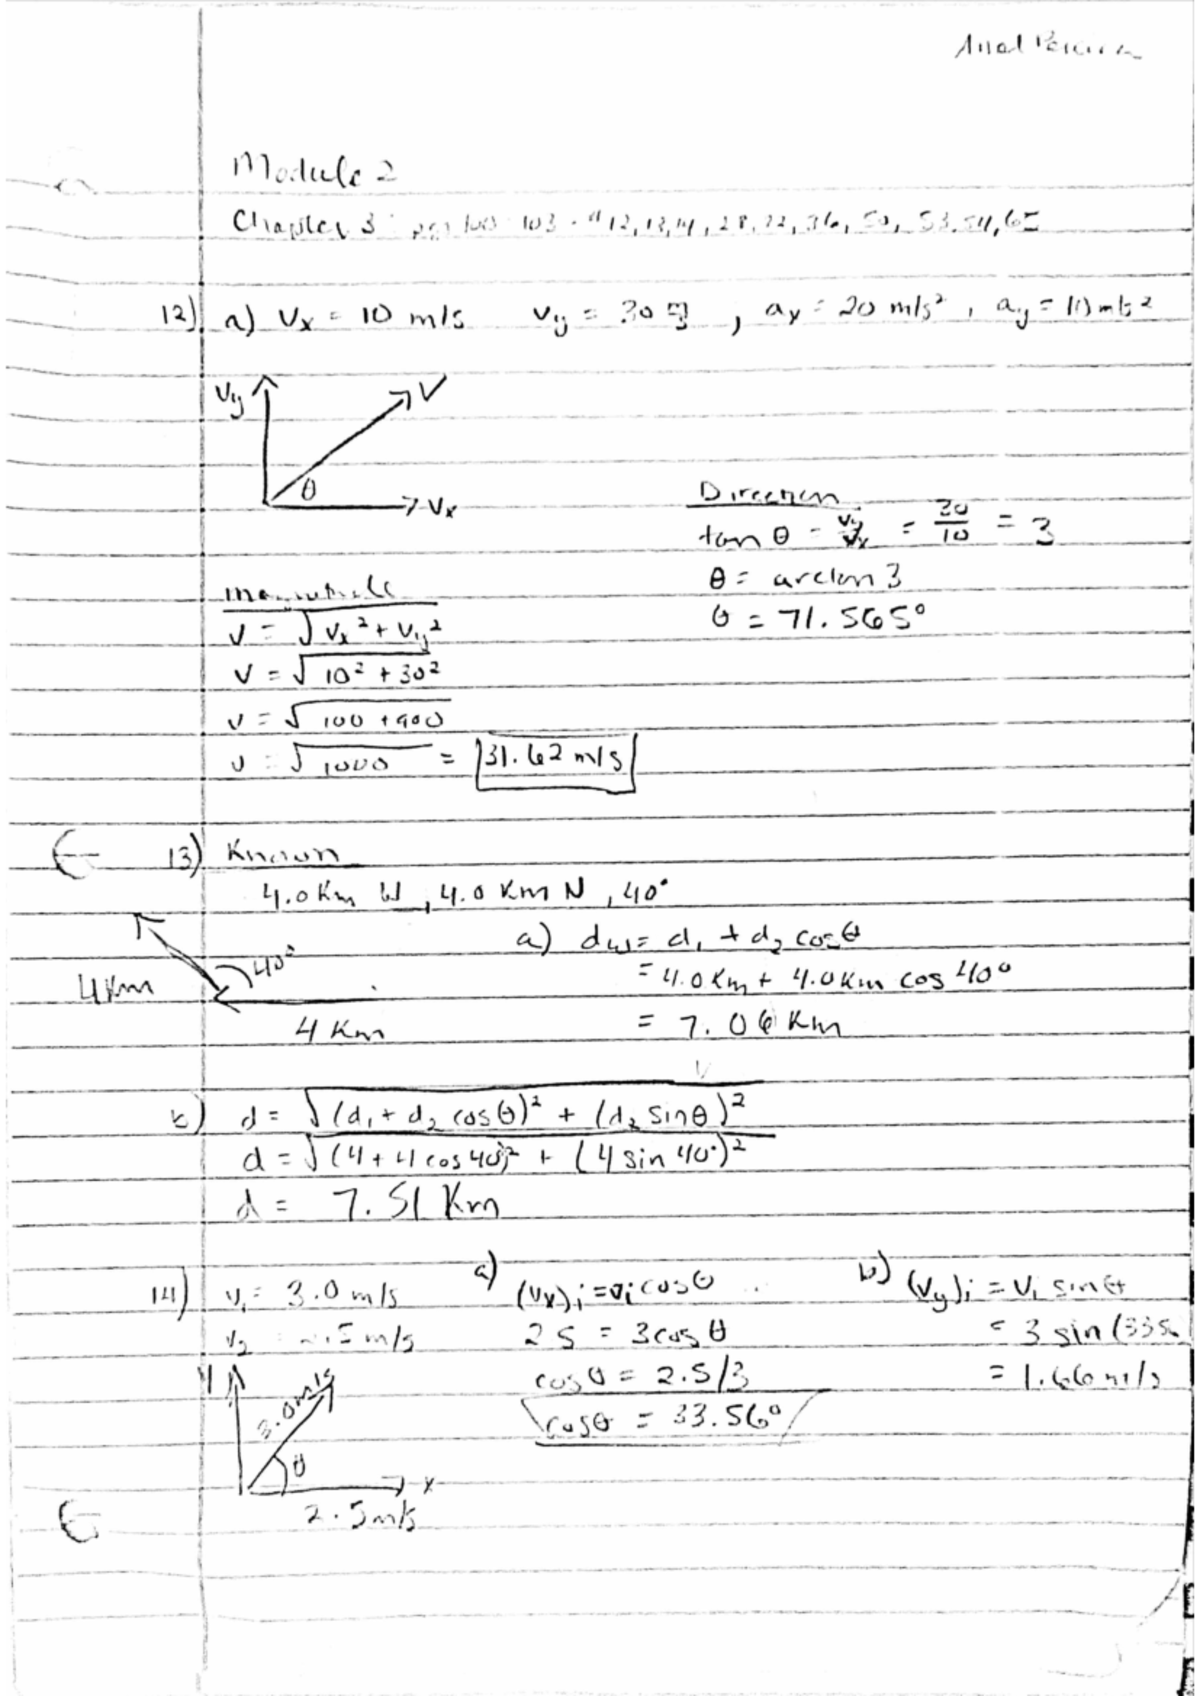 Module 2
Chapter 3 : 103 - # 12, 13, 14, 28, 32, 36, 50, 53, 54, 65
12) a) Vx = 10 m/s Vy = 30 m/s , ax = 20 m/s² , ay = 10 m/s²
Vy V
θ
Vx
Direction
tan θ = Vy/Vx = 30/10 = 3
θ = arctan 3
θ = 71.565°
Magnitude
V = √Vx² + Vy²
V = √10² + 30²
V = √100 + 900
V = √1000 = 31.62 m/s
13) Known
4.0 Km W, 4.0 Km N, 40°
4Km 40°
4 Km
a) dw = d₁ + d₂ cosθ
= 4.0 Km + 4.0 Km cos 40°
= 7.06 Km
b) d = √(d₁ + d₂ cosθ)² + (d₂ sinθ)²
d = √(4 + 4 cos 40°)² + (4 sin 40°)²
d = 7.51 Km
14) V₁ = 3.0 m/s
V₂ = 2.5 m/s
3.0 m/s
θ
x
2.5 m/s
a) (Vx)i = Vi cosθ
2.5 = 3 cos θ
cos θ = 2.5/3
cosθ = 33.56°
b) (Vy)i = Vi sinθ
= 3 sin (33.5
= 1.66 m/s